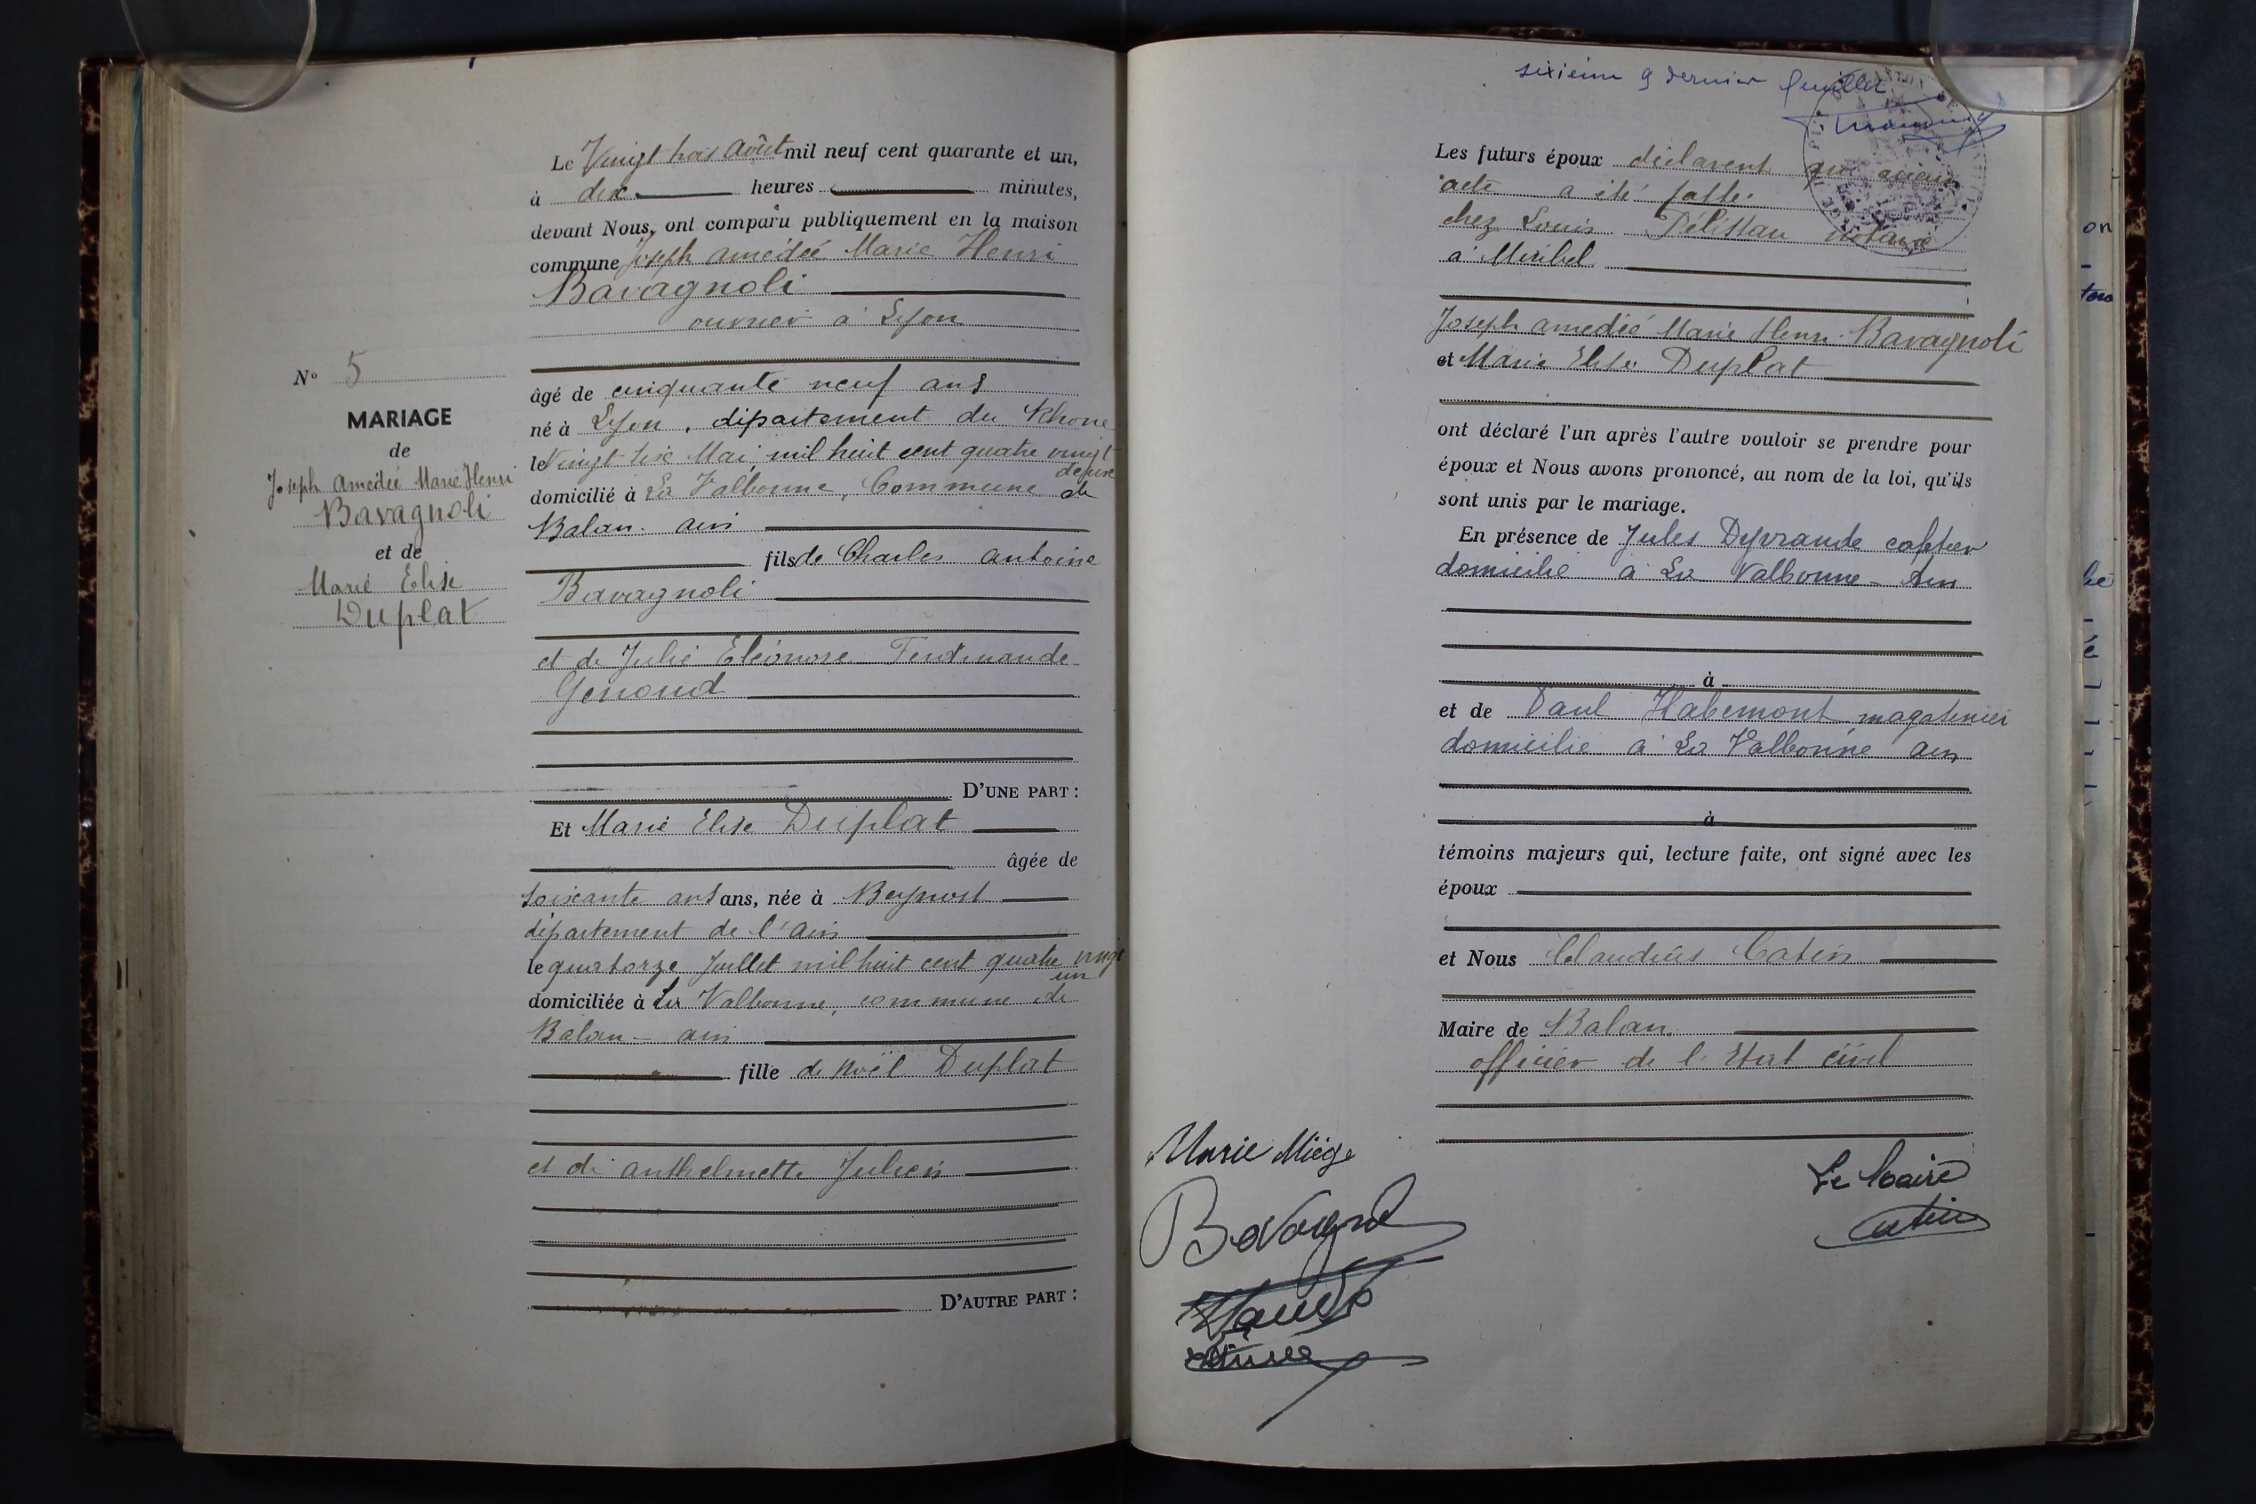 Le Vingt trois Août mil neuf cent quarante et un,
à dix heures minutes,
devant Nous, ont comparu publiquement en la maison
commune Joseph Amédée Marie Henri
Bavagnoli
ouvrier à Lyon
N° 5
MARIAGE
de
Joseph Amédée Marie Henri
Bavagnoli
et de
Marie Elise
Duplat
âgé de cinquante neuf ans
né à Lyon, département du Rhone
le Vingt six Mai, mil huit cent quatre vingt
deux
domicilié à La Valbonne, Commune de
Balan - ain
fils de Charles Antoine
Bavagnoli
et de Julie Eléonore Ferdinande
Genoud
D'UNE PART :
Et Marie Elise Duplat
âgée de
soixante ans ans, née à Beynost
département de l'ain
le quatorze Juillet mil huit cent quatre vingt
un
domiciliée à La Valbonne, commune de
Balan - ain
fille de Noël Duplat
et de anthelmette Julien
D'AUTRE PART :
sixième & dernier feuillet
Les futurs époux déclarent qu' aucun
acte a été fait
chez Louis notaire
à Miribel
Joseph Amédée Marie Henri Bavagnoli
et Marie Elise Duplat
ont déclaré l'un après l'autre vouloir se prendre pour
époux et Nous avons prononcé, au nom de la loi, qu'ils
sont unis par le mariage.
En présence de Jules cafetier
domicilié à La Valbonne - Ain
à
et de Paul Habemont magasinier
domicilié à La Valbonne ain
à
témoins majeurs qui, lecture faite, ont signé avec les
époux
et Nous Claudius Catin
Maire de Balan
officier de l'Etat civil
Marie Miège
Bavagnol
Le Maire
Catin